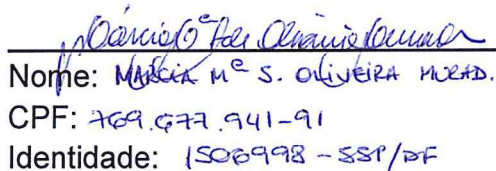 Nome: MARCIA Mª S. OLIVEIRA MURAD.
CPF: 769.677.941-91
Identidade: 1506998 - SSP/DF